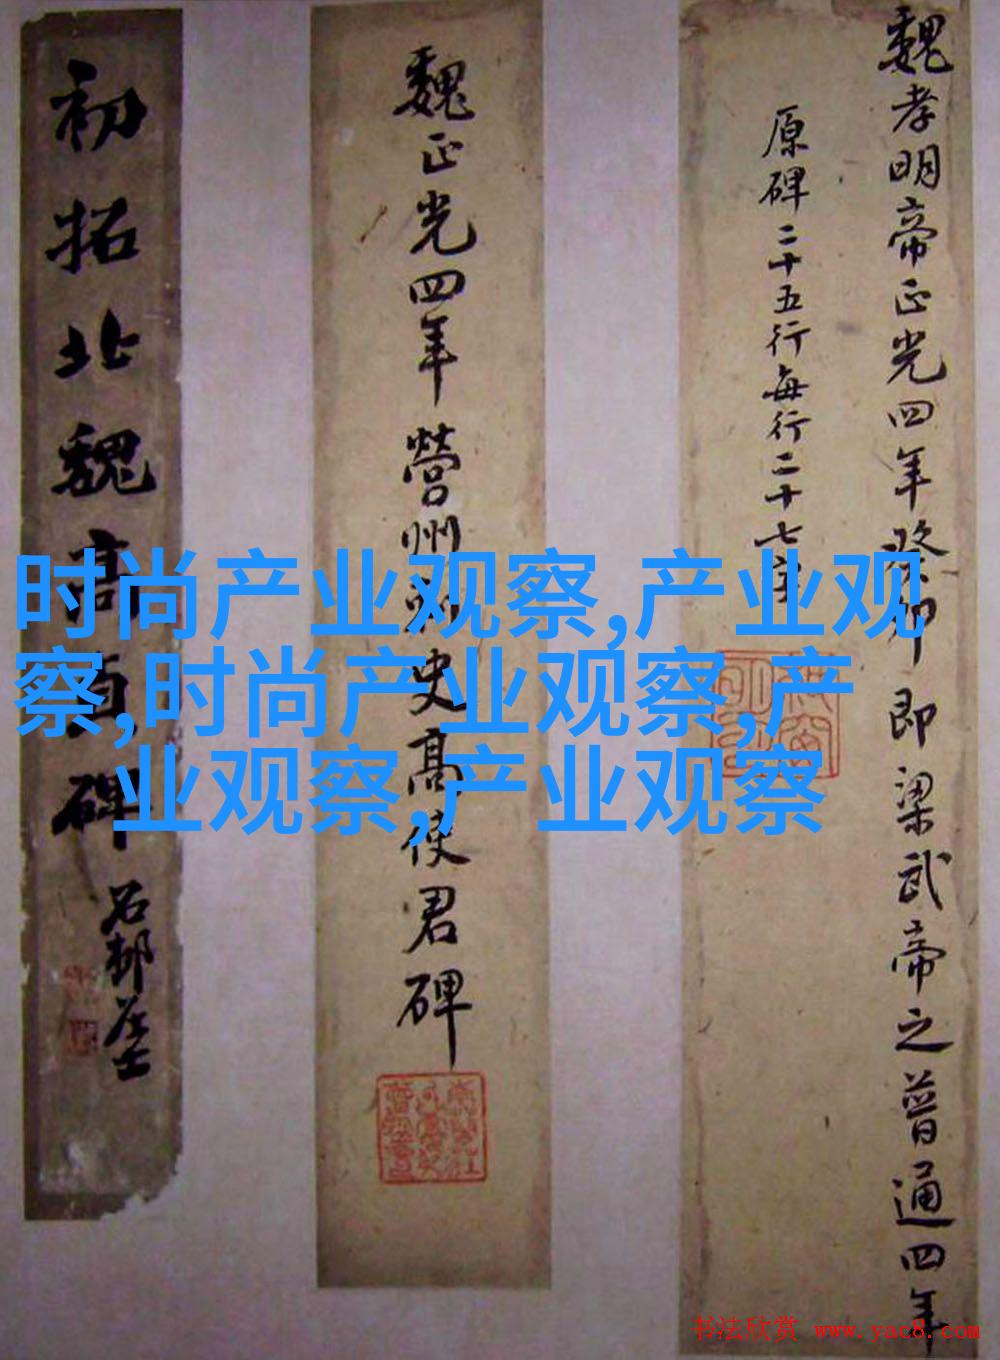 魏孝明帝正光四年癸卯即梁武帝之普通四年
原碑二十五行每行二十七字
魏正光四年營州刺史高使君碑
初拓北魏高貞碑
时尚产业观察,产业观
察,时尚产业观察,产
业观察,产业观察
书法欣赏 www.yac8.com